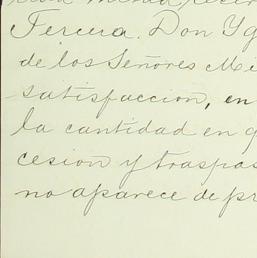 Tercera. Don Yg
de los Señores Me
satisfaccion, en
la cantidad en q
cesion y traspas
no aparece de pr